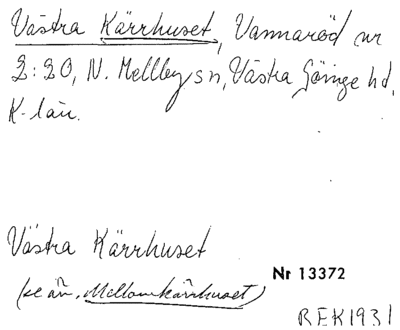 Västra Kärrhuset, Vannaröd nr
2:20, N. Mellby sn, Västra Göinge hd,
K-län.
Västra Kärrhuset
(se än. Mellomkärrhuset)
Nr 13372
REK1931